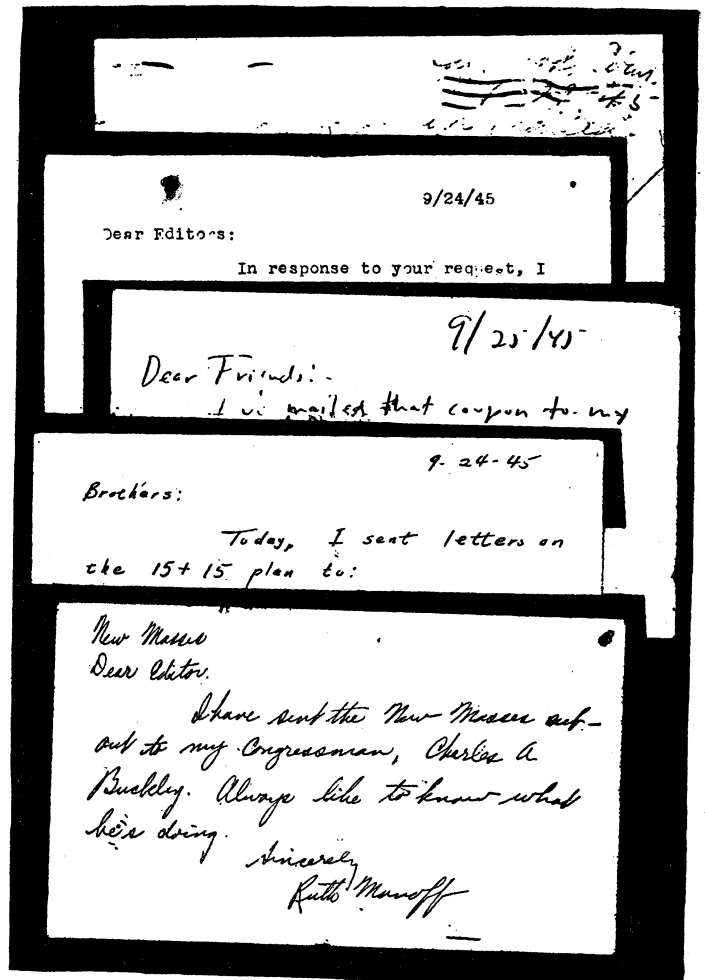 9/24/45
Dear Editors:
In response to your request, I
9/25/45
Dear Friends:-
I've mailed that coupon to my
9-24-45
Brothers:
Today, I sent letters on
the 15+15 plan to:
New Masses
Dear Editor.
I have sent the New Masses cut-
out to my Congressman, Charles A
Buckley. Always like to know what
he's doing.
Sincerely
Ruth Manoff